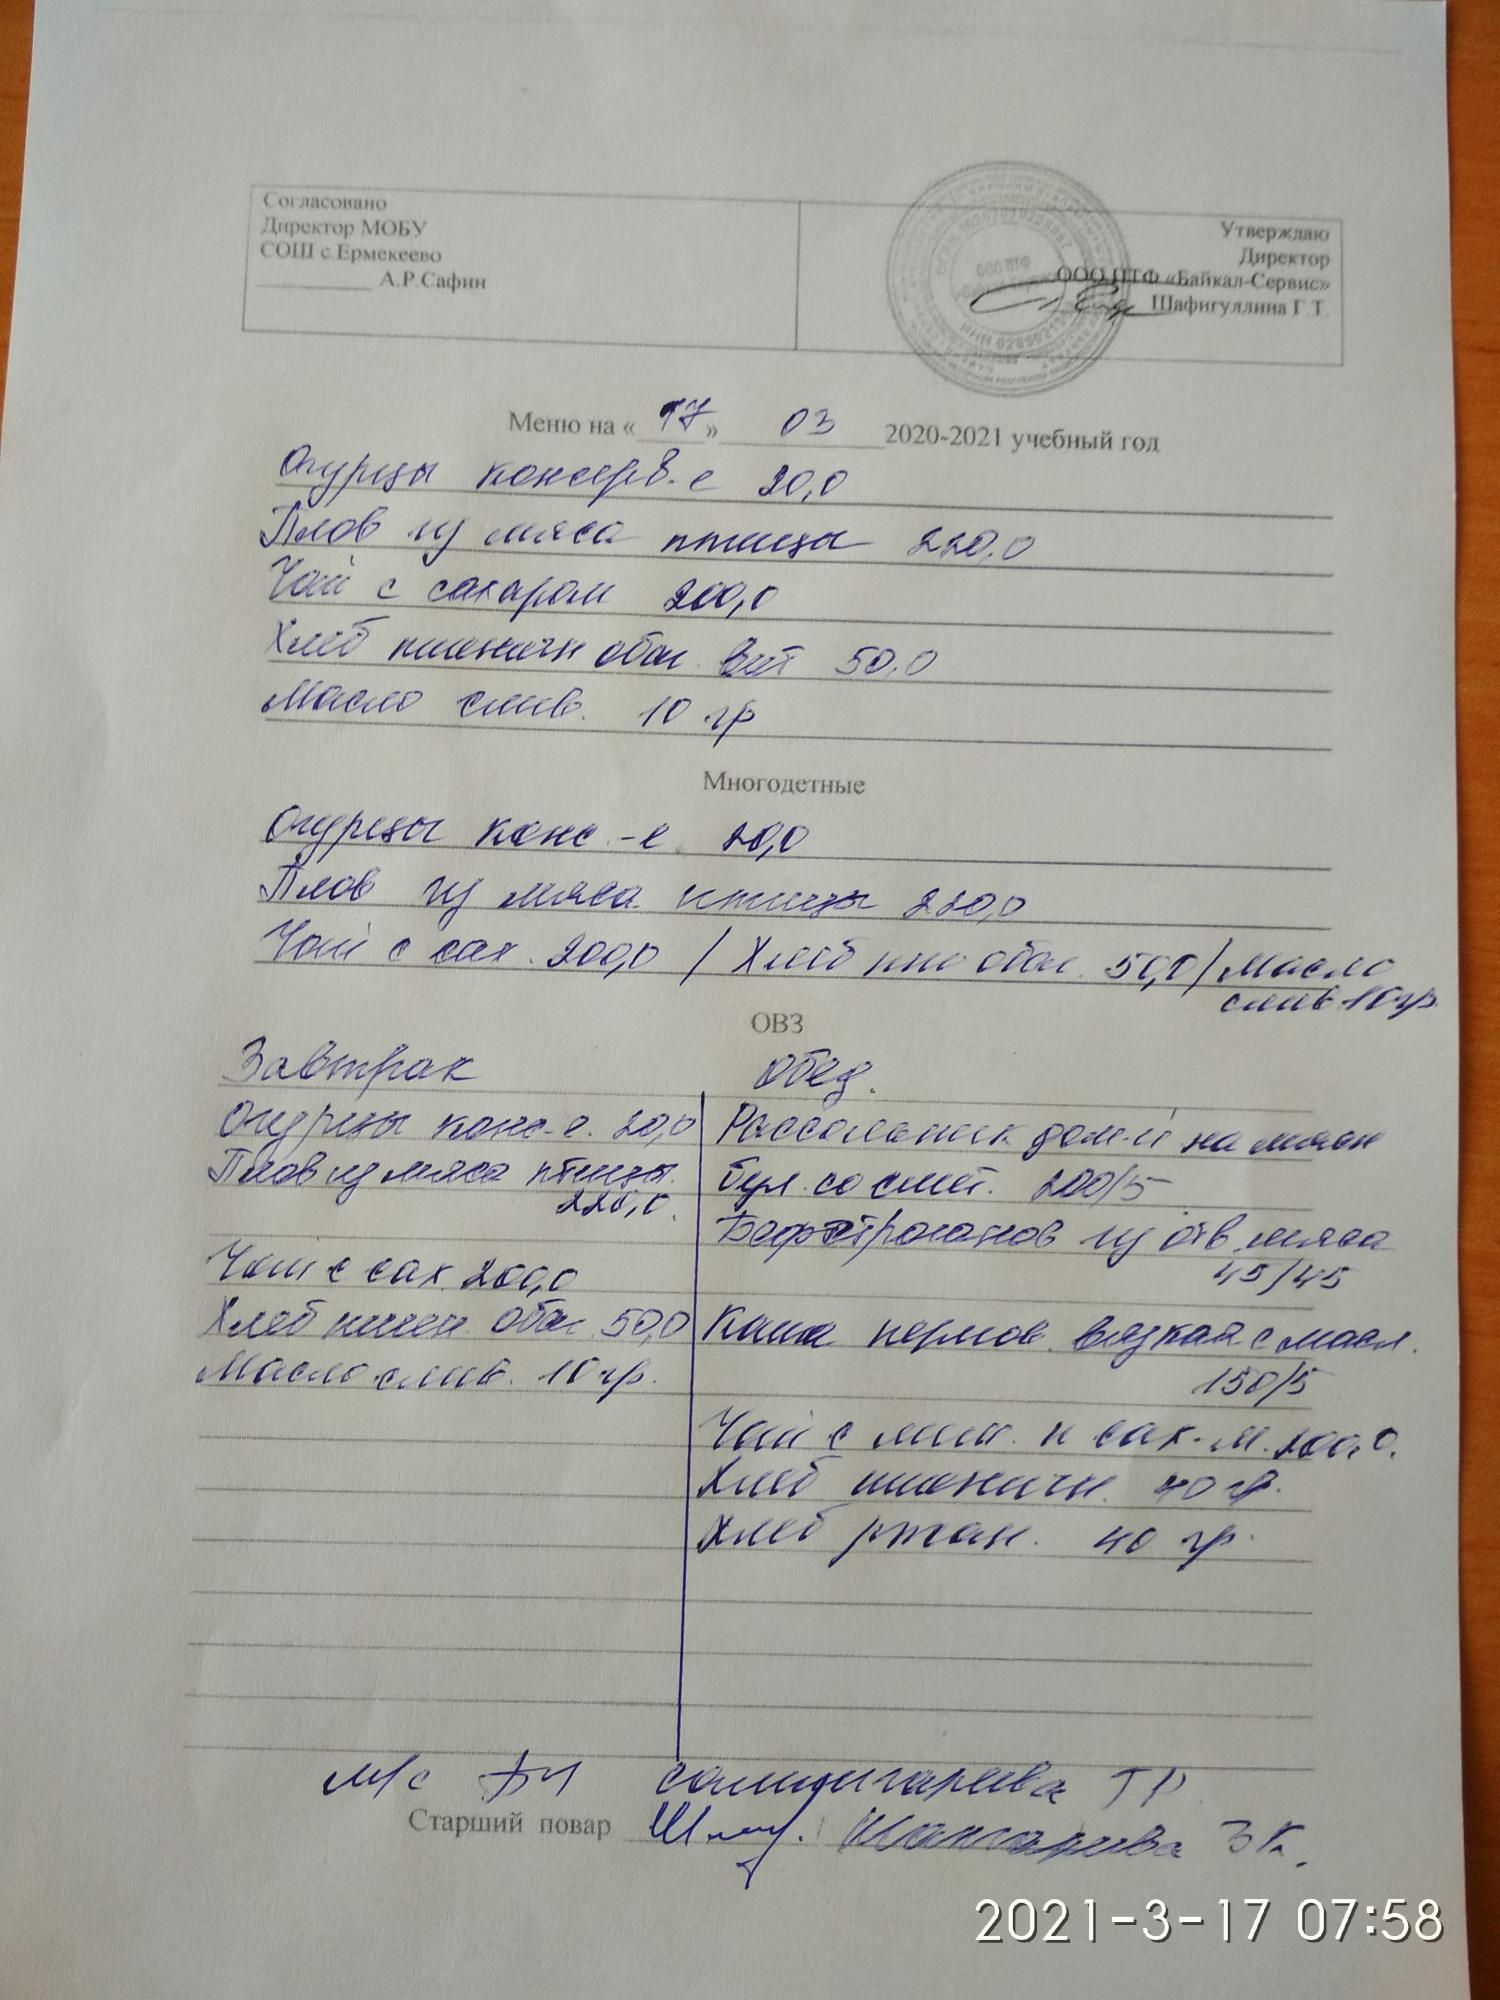 Согласовано
Директор МОБУ
СОШ с.Ермекеево
__________ А.Р.Сафин
Утверждаю
Директор
ООО ПТФ «Байкал-Сервис»
Шафигуллина Г.Т.
Меню на « 17 » 03 2020-2021 учебный год
Огурцы консерв-е 20,0
Плов из мяса птицы 220,0
Чай с сахаром 200,0
Хлеб пшеничн обог. вит 50,0
Масло слив. 10 гр
Многодетные
Огурцы конс.-е 20,0
Плов из мяса птицы 220,0
Чай с сах. 200,0 / Хлеб пш обог. 50,0 / Масло
слив 10гр
ОВЗ
Завтрак
Огурцы конс-е. 20,0
Плов из мяса птицы.
220,0.
Чай с сах 200,0
Хлеб пшен. обог. 50,0
Масло слив. 10 гр.
Обед.
Рассольник дом-й на мясн
бул. со смет. 200/5
Бефстроганов из отв. мяса
45/45
Каша перлов. вязкая с масл.
150/5
Чай с мол. и сах-м. 200,0.
Хлеб пшеничн. 40 гр.
Хлеб ржан. 40 гр.
м/с Салимгареева ГР
Старший повар Шангареева З К.
2021-3-17 07:58